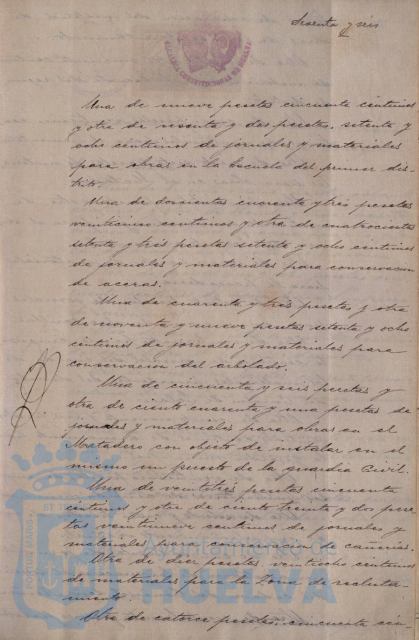 Sesenta y seis
ALCALDIA CONSTITUCIONAL DE HUELVA
Una de nueve pesetas cincuenta centimos
y otra de sesenta y dos pesetas, setenta y
ocho centimos de jornales y materiales
para obras en la Escuela del primer dis-
trito.
Una de doscientas cuarenta y tres pesetas
veinticinco centimos y otra de cuatrocientas
setenta y tres pesetas setenta y ocho centimos
de jornales y materiales para conservacion
de aceras.
Una de cuarenta y tres pesetas y otra
de noventa y nueve pesetas setenta y ocho
centimos de jornales y materiales para
conservacion del arbolado.
Una de cincuenta y seis pesetas y
otra de ciento cuarenta y una pesetas de
jornales y materiales para obras en el
Matadero con objeto de instalar en el
mismo un puesto de la guardia Civil.
Una de veintitres pesetas cincuenta
centimos y otra de ciento treinta y dos pese-
tas veintinueve centimos de jornales y
materiales para conservacion de cañerias.
Otra de diez pesetas veintiocho centimos
de materiales para la Zona de recluta-
miento.
Otra de catorce pesetas, cincuenta cén-
Ayuntamiento de
HUELVA